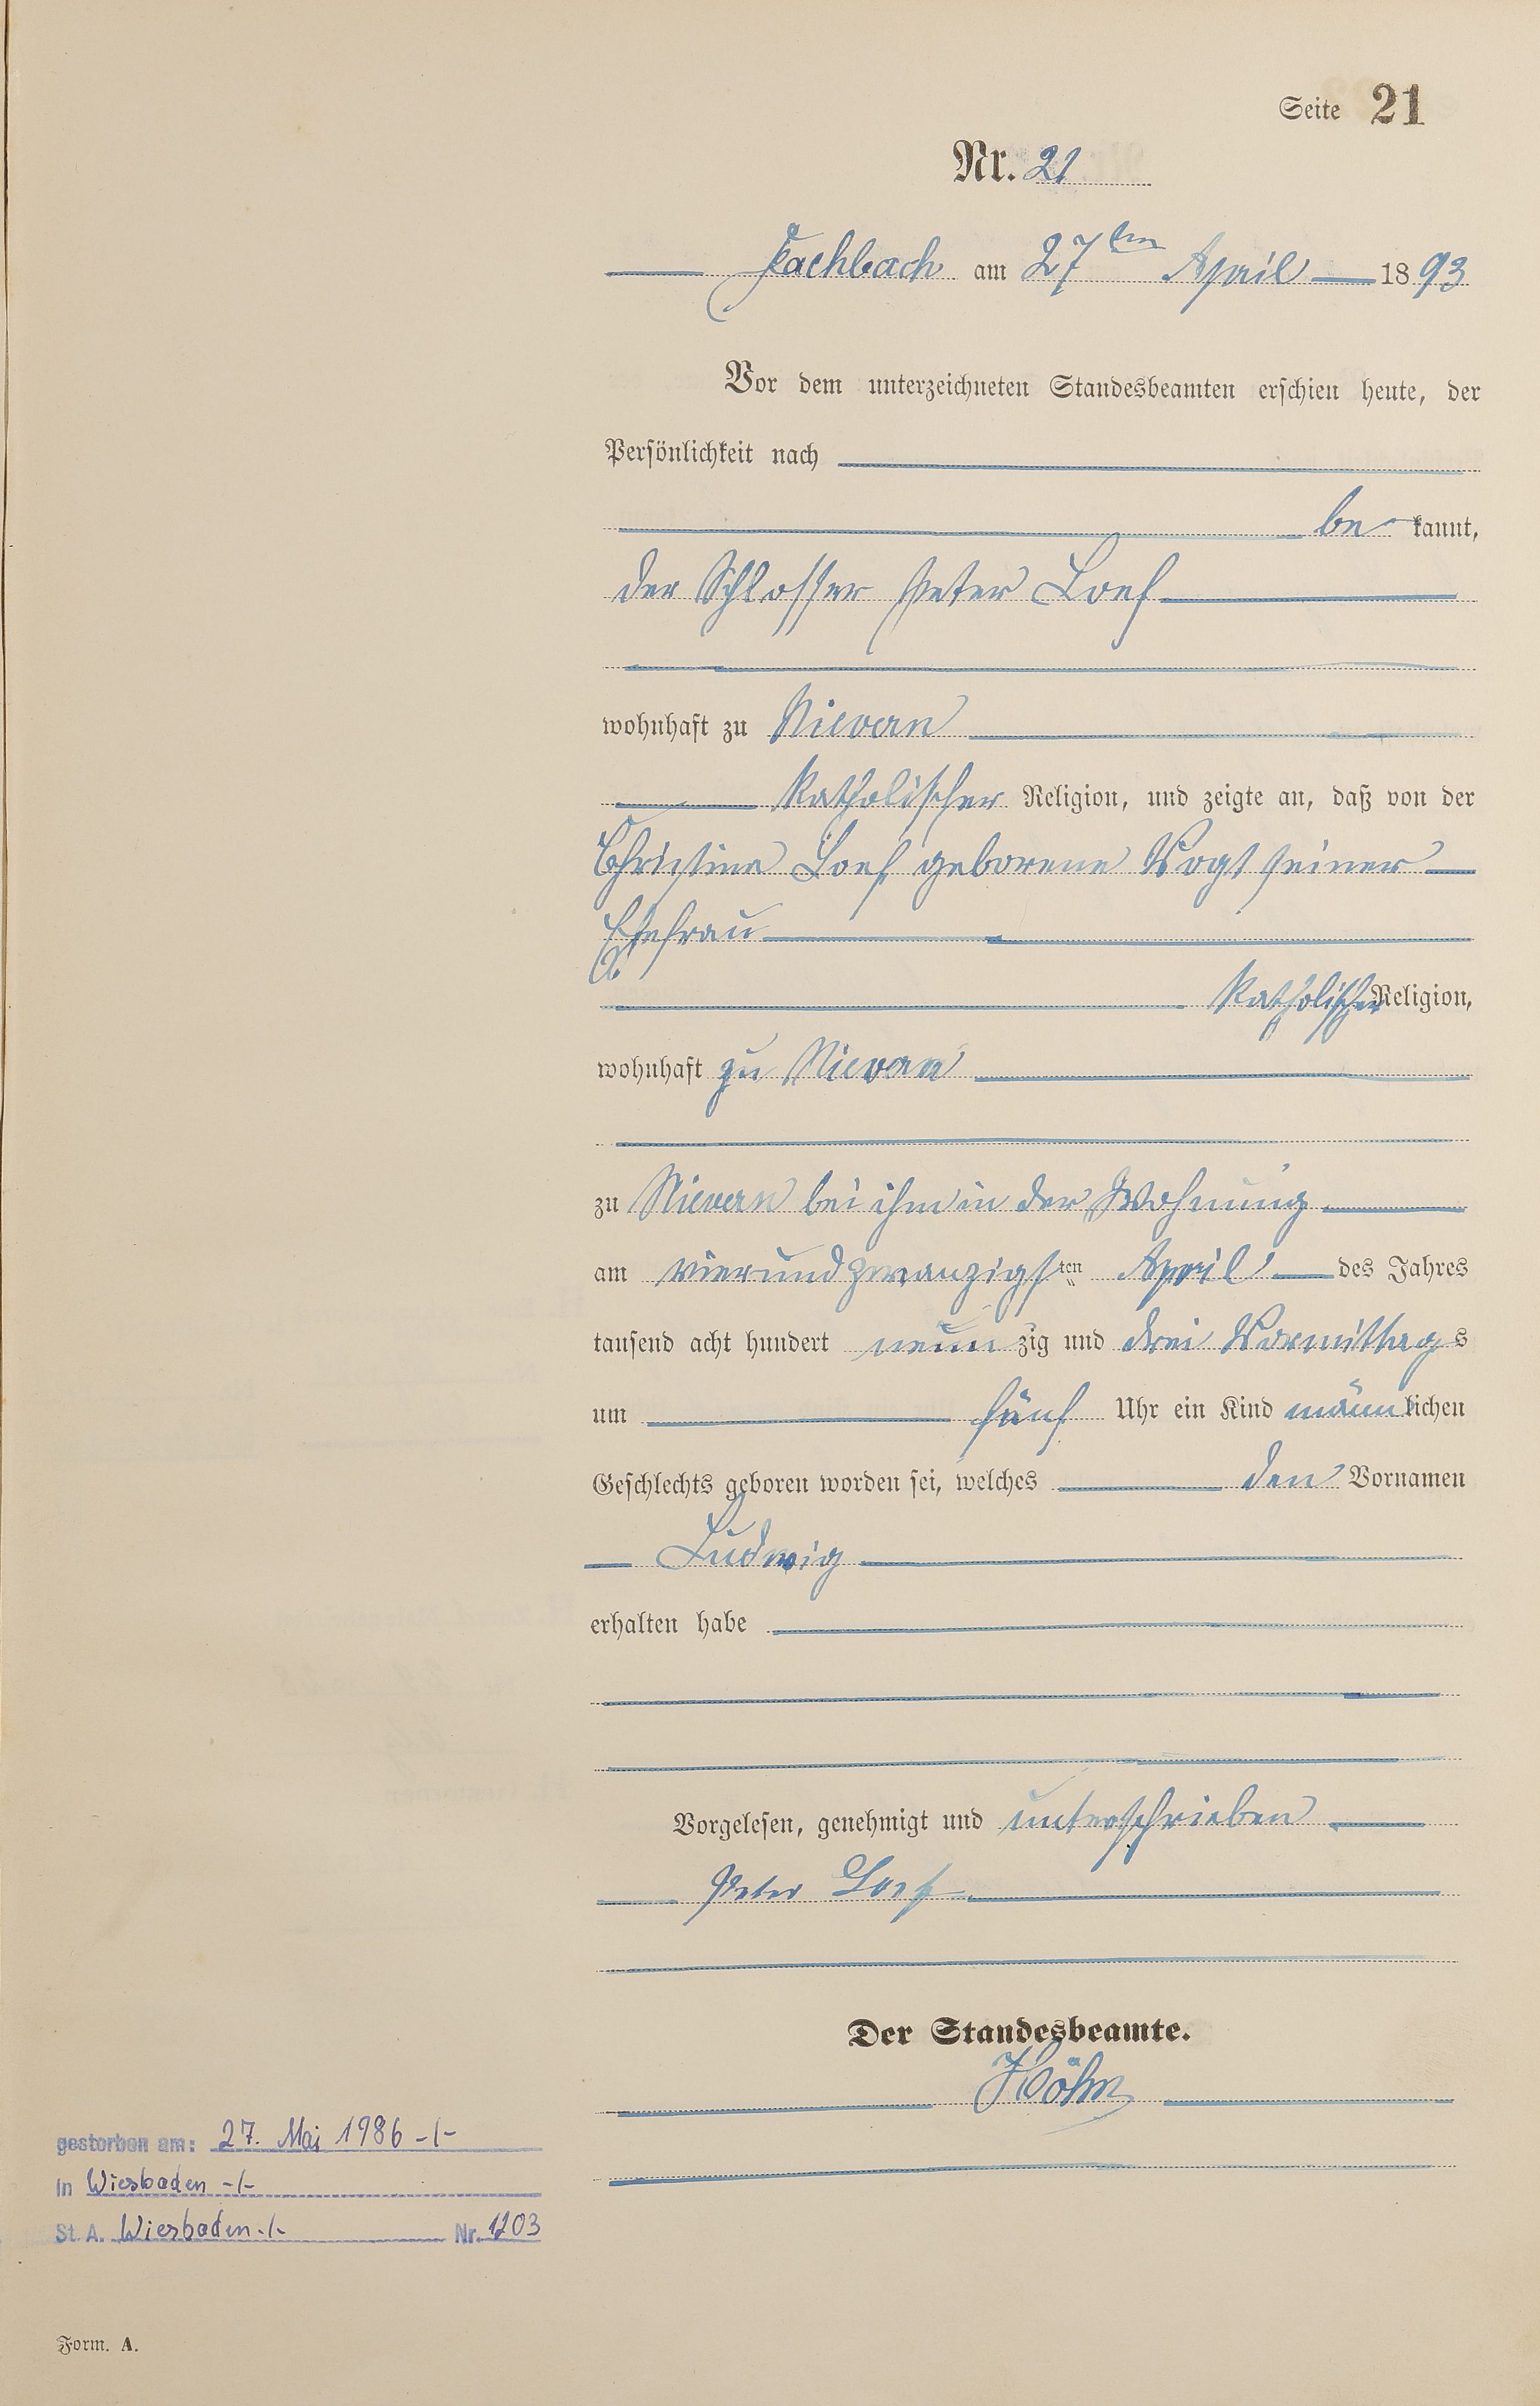 Seite 21
Nr. 21
Fachbach am 27ten April 1893
Vor dem unterzeichneten Standesbeamten erschien heute, der
Persönlichkeit nach
be kannt,
der Schlosser Peter Loef
wohnhaft zu Nievern
katholischer Religion, und zeigte an, daß von der
Christina Loef geborene Vogt seiner
Ehefrau
katholischer Religion,
wohnhaft zu Nievern
zu Nievern bei ihm in der Wohnung
am vierundzwanzigsten April des Jahres
tausend acht hundert neun zig und drei Vormittags
um fünf Uhr ein Kind männlichen
Geschlechts geboren worden sei, welches den Vornamen
Ludwig
erhalten habe
Vorgelesen, genehmigt und unterschrieben
Peter Loef
Der Standesbeamte.
Höhn
gestorben am: 27. Mai 1986 -/-
in Wiesbaden -/-
St. A. Wiesbaden -/- Nr. 1203
Form. A.